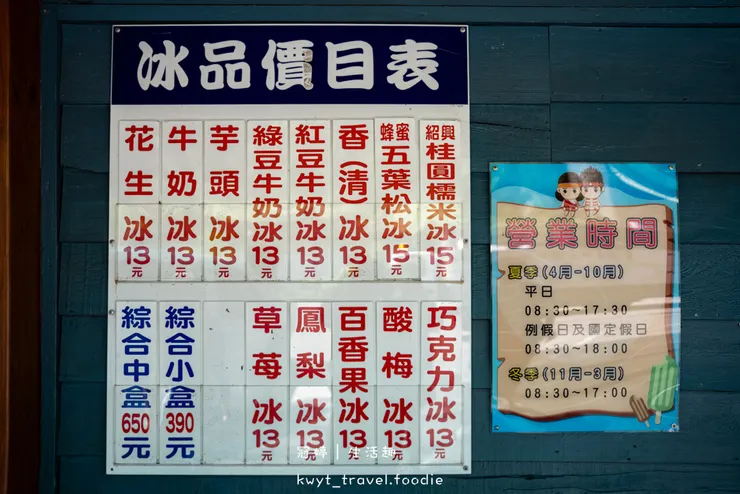 冰品價目表
紹興桂圓糯米冰15元
蜂蜜五葉松冰15元
香(清)冰13元
紅豆牛奶冰13元
綠豆牛奶冰13元
芋頭冰13元
牛奶冰13元
花生冰13元
巧克力冰13元
酸梅冰13元
百香果冰13元
鳳梨冰13元
草莓冰13元
綜合小盒390元
綜合中盒650元
營業時間
夏季(4月-10月)
平日
08:30~17:30
例假日及國定假日
08:30~18:00
冬季(11月-3月)
08:30~17:00
冠婷|生活趣
kwyt_travel.foodie